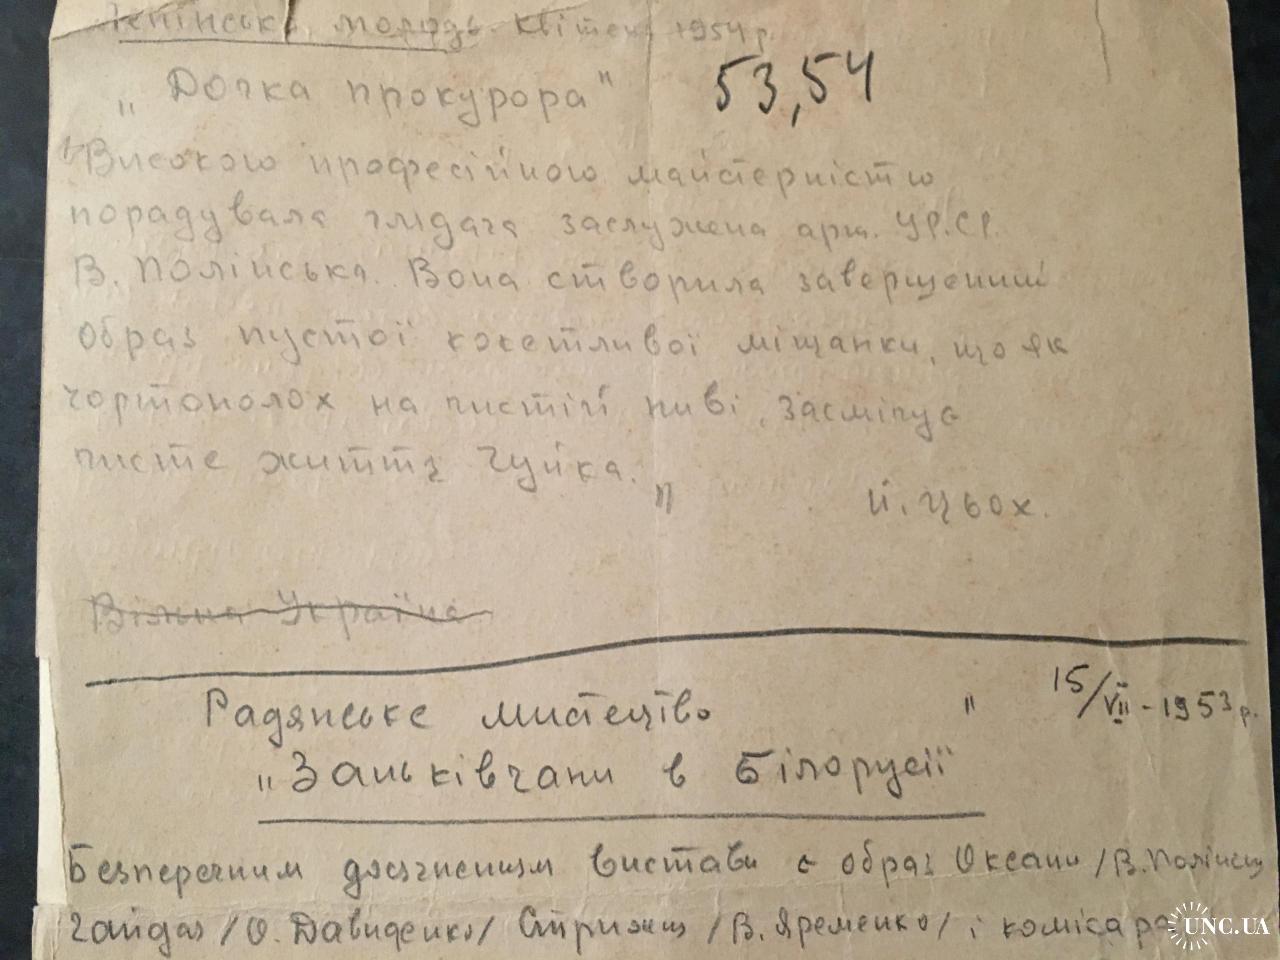 Ленінська молодь. Квітень 1954 р.
„Дочка прокурора" 53,54
"Високою професійною майстерністю
порадувала глядача заслужена арт. УР.СР.
В. Полінська. Вона створила завершений
образ пустої кокетливої міщанки, що як
чортополох на чистій ниві, засмічує
чисте життя Чуйка."
Й. Цьох.
Вільна Україна
Радянське мистецтво " 15/VII - 1953 р.
„Заньківчани в Білорусії"
Безперечним досягненням вистави є образ Оксани /В. Полінськ
Гайдая /О. Давиденко/ Стрижня /В. Яременко/ і комісара
UNC.UA